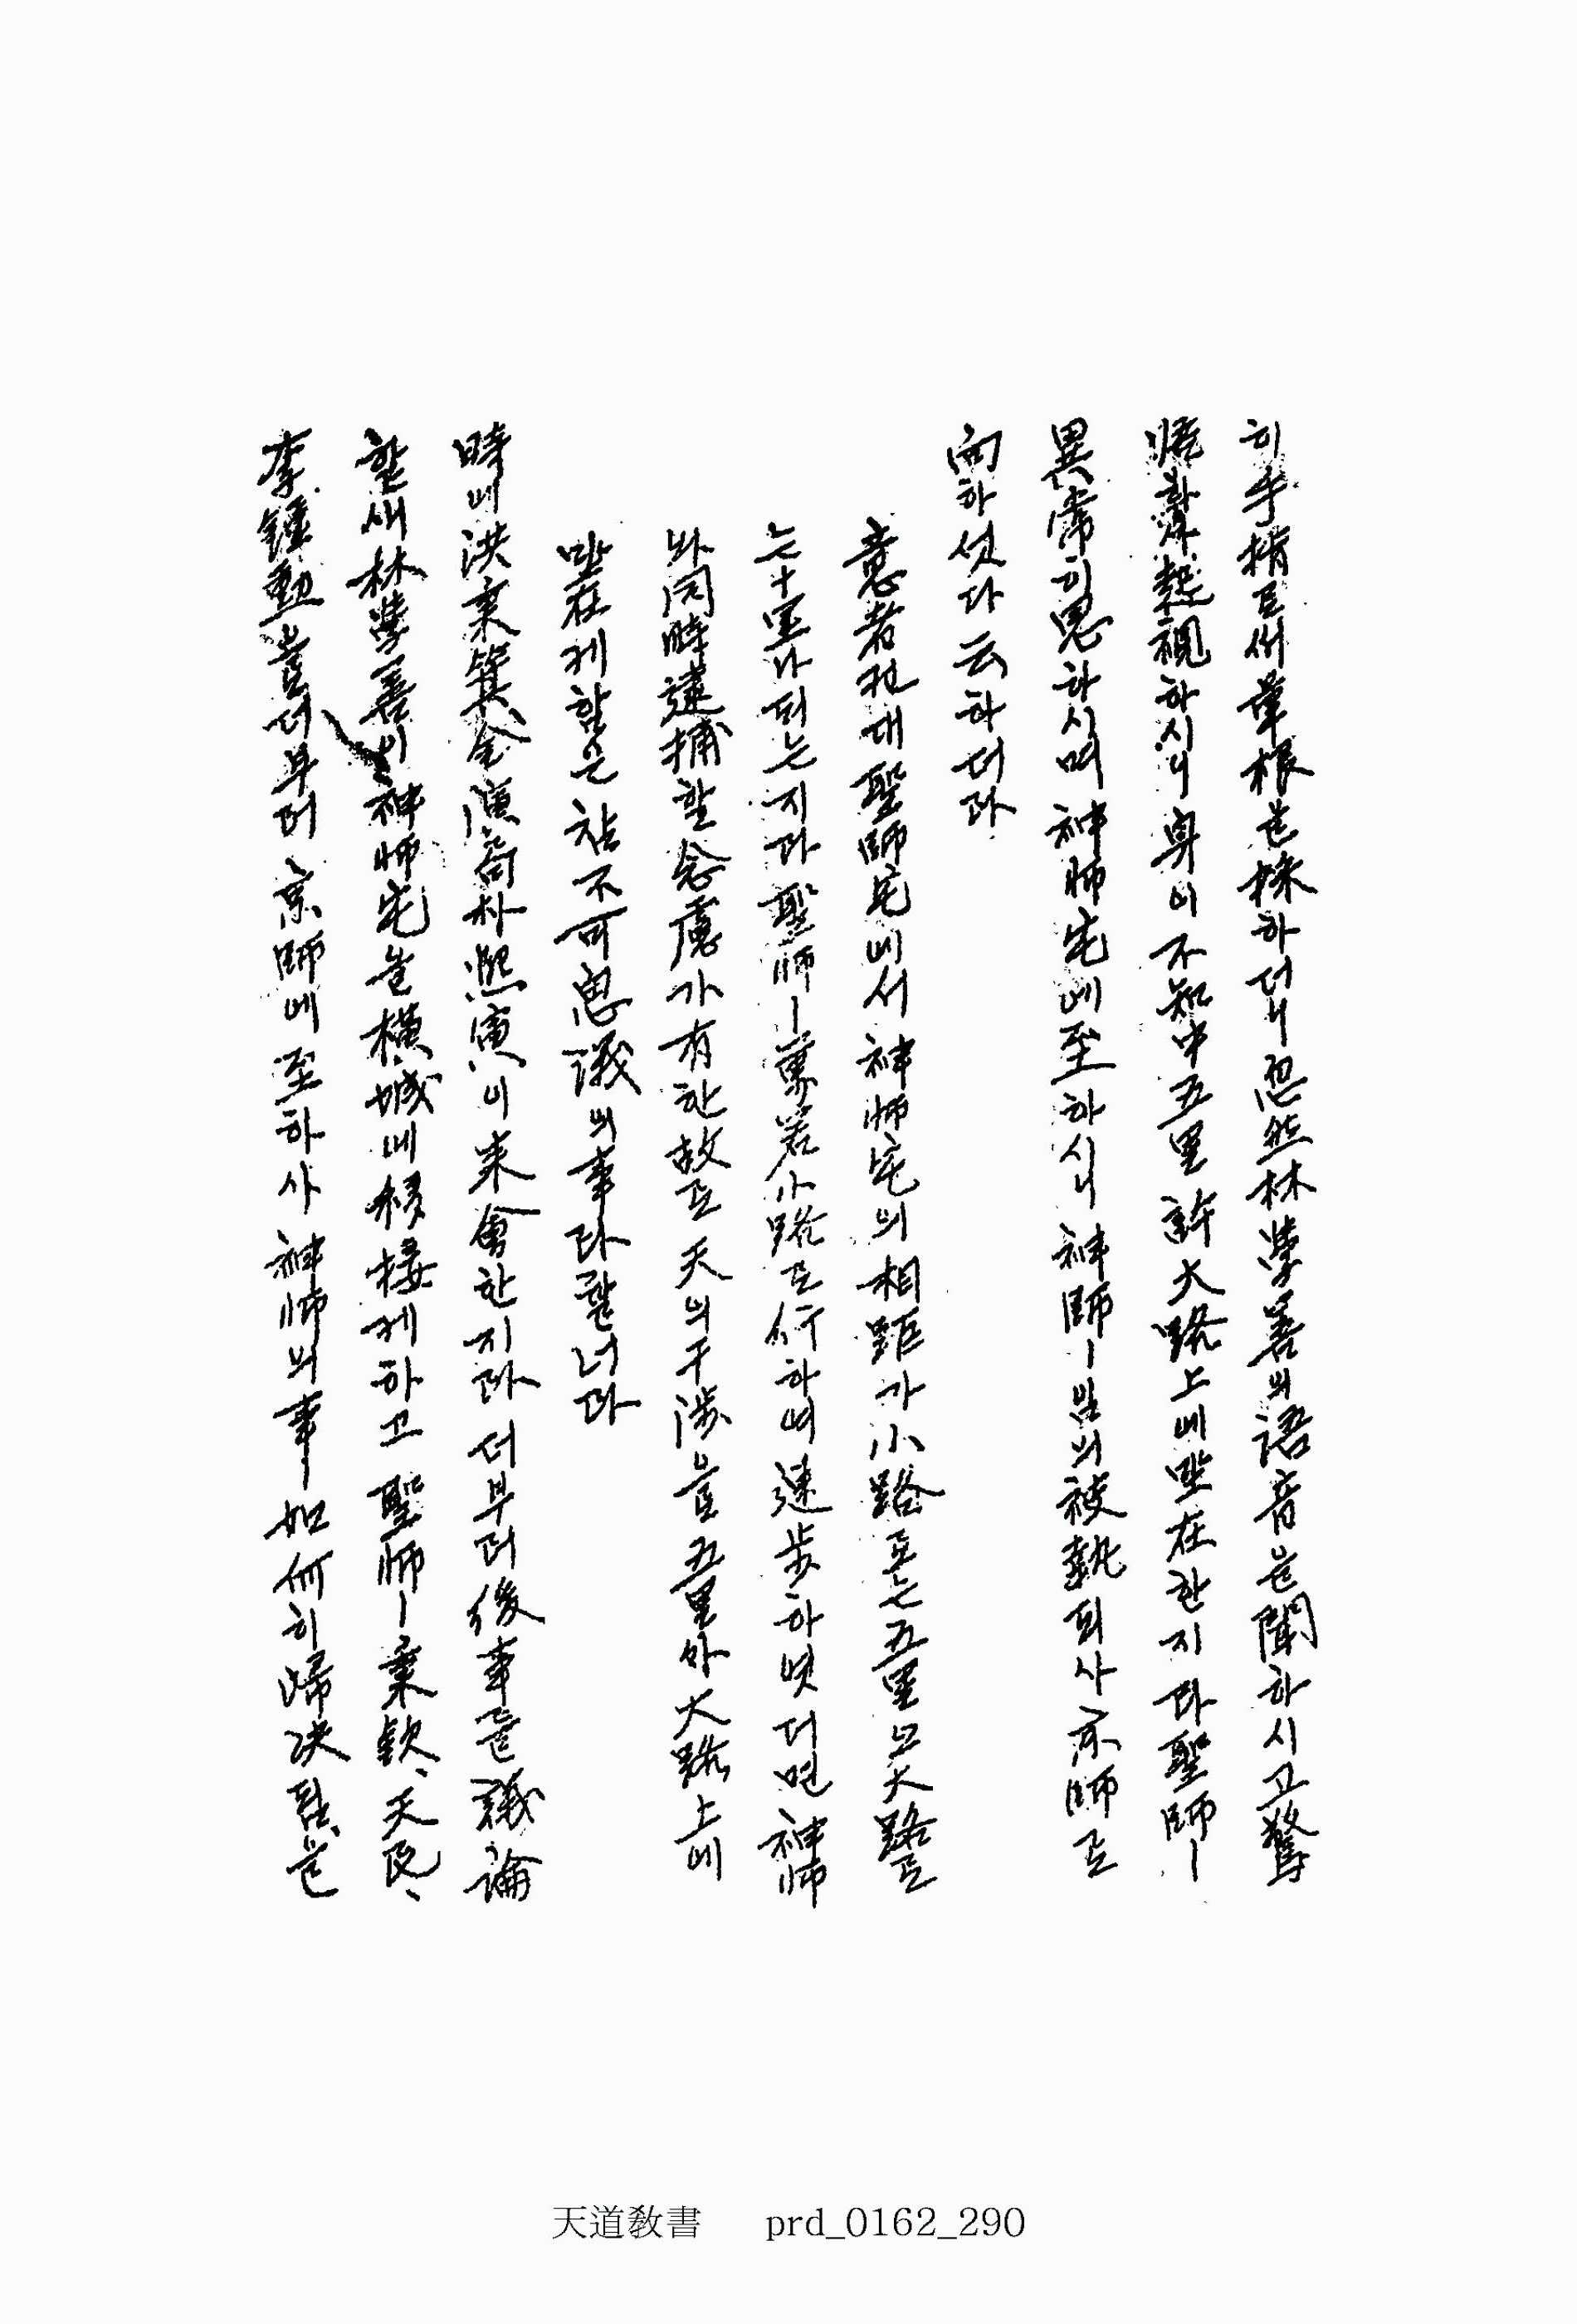 히 手精로써 草根을 採하더니 忽然 林學善의 語音을 聞하시고 驚
悟하야 起視하시니 身이 不知中 五里許 大路上에 坐在한지라 聖師ㅣ
異常히 思하시며 神師宅에 至하시니 神師ㅣ 임의 被執되사 京師로
向하섯다 云하더라
意者컨대 聖師宅에서 神師宅의 相距가 小路로는 五里오 大路로
는 十里나 되는지라 聖師ㅣ 萬若 小路로 行하며 速步하엿더면 神師
와 同時 逮捕할 念慮가 有한 故로 天의 干涉을 五里外 大路上에
坐在케 함은 참 不可思議의 事라 할너라
時에 洪秉箕 金演局 朴熙寅이 來會한지라 더부러 後事를 議論
할새 林學善이 神師宅을 橫城에 移接케 하고 聖師ㅣ 秉欽、天民、
李鍾勳을 더부러 京師에 至하사 神師의 事ㅣ 如何히 歸決됨을
天道敎書 prd_0162_290